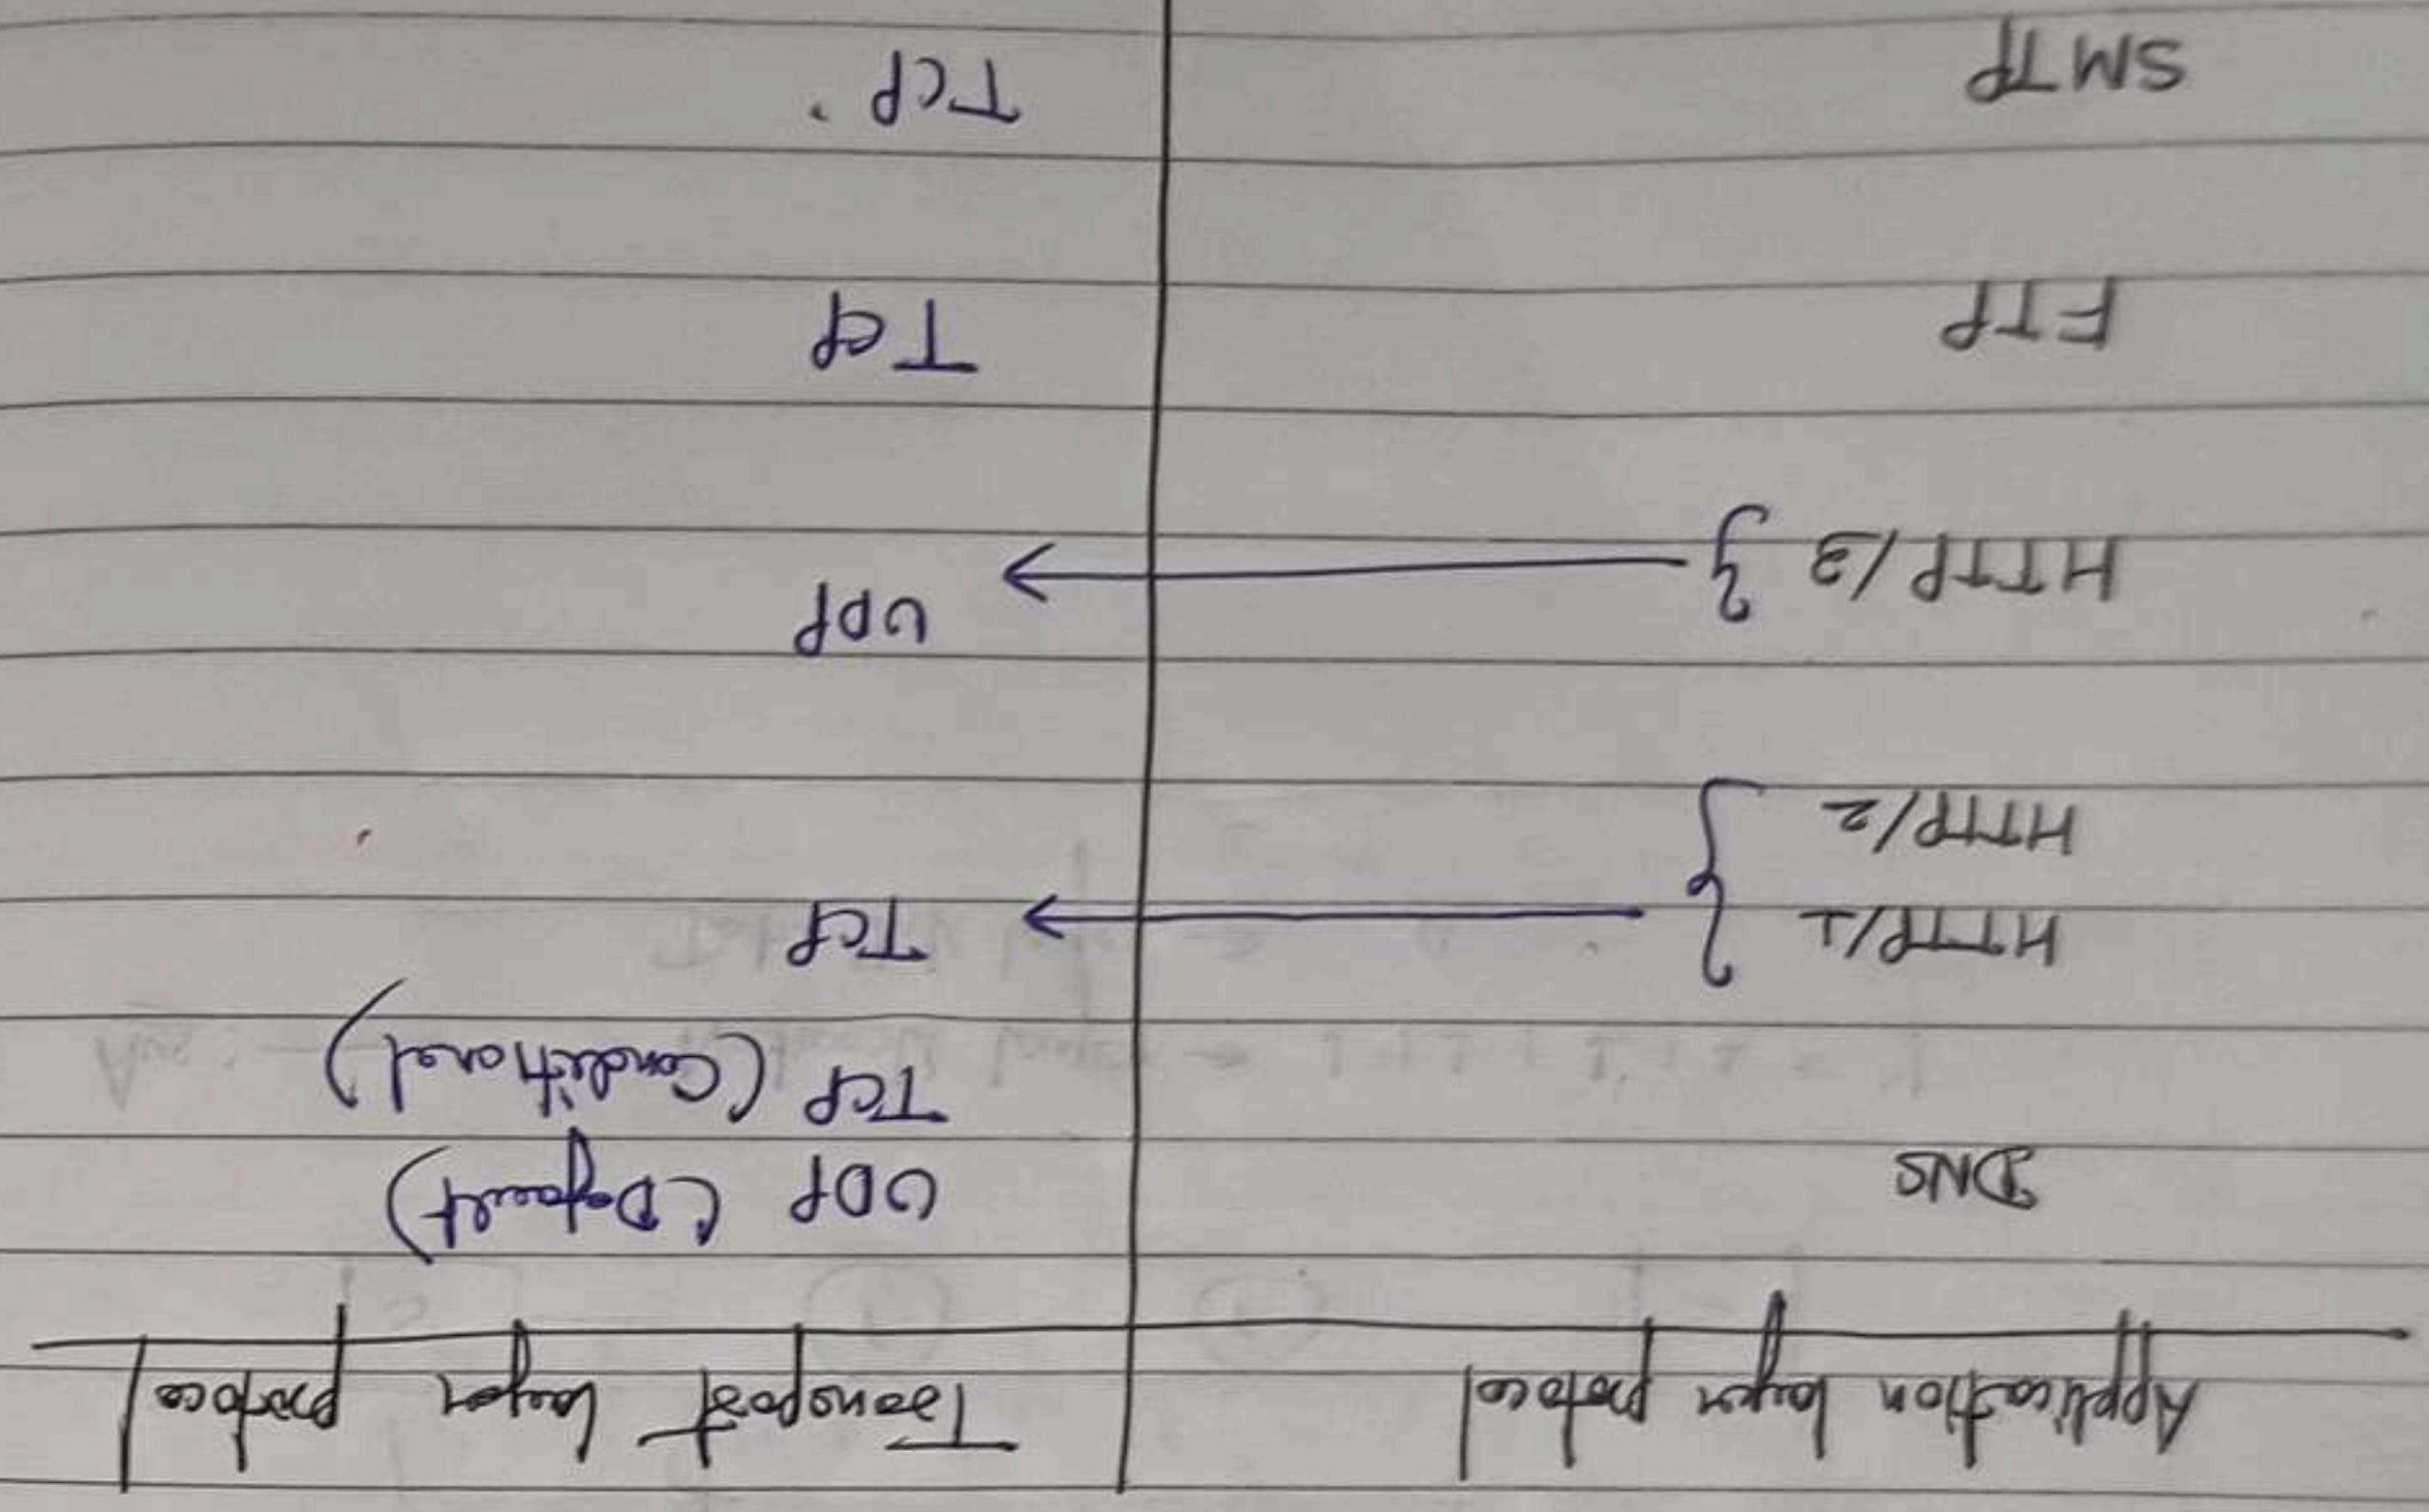 Application layer protocol | Transport layer protocol
DNS | UDP (Default)
TCP (Conditional)
HTTP/1 } → TCP
HTTP/2
HTTP/3 } → UDP
FTP | TCP
SMTP | TCP.